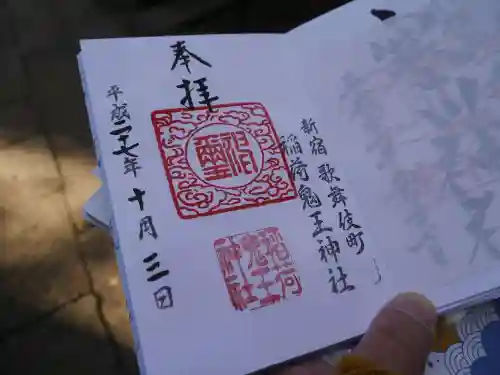 新宿歌舞伎町
稲荷鬼王神社
奉拝
平成二十七年十月三日
稲荷
鬼王
神社